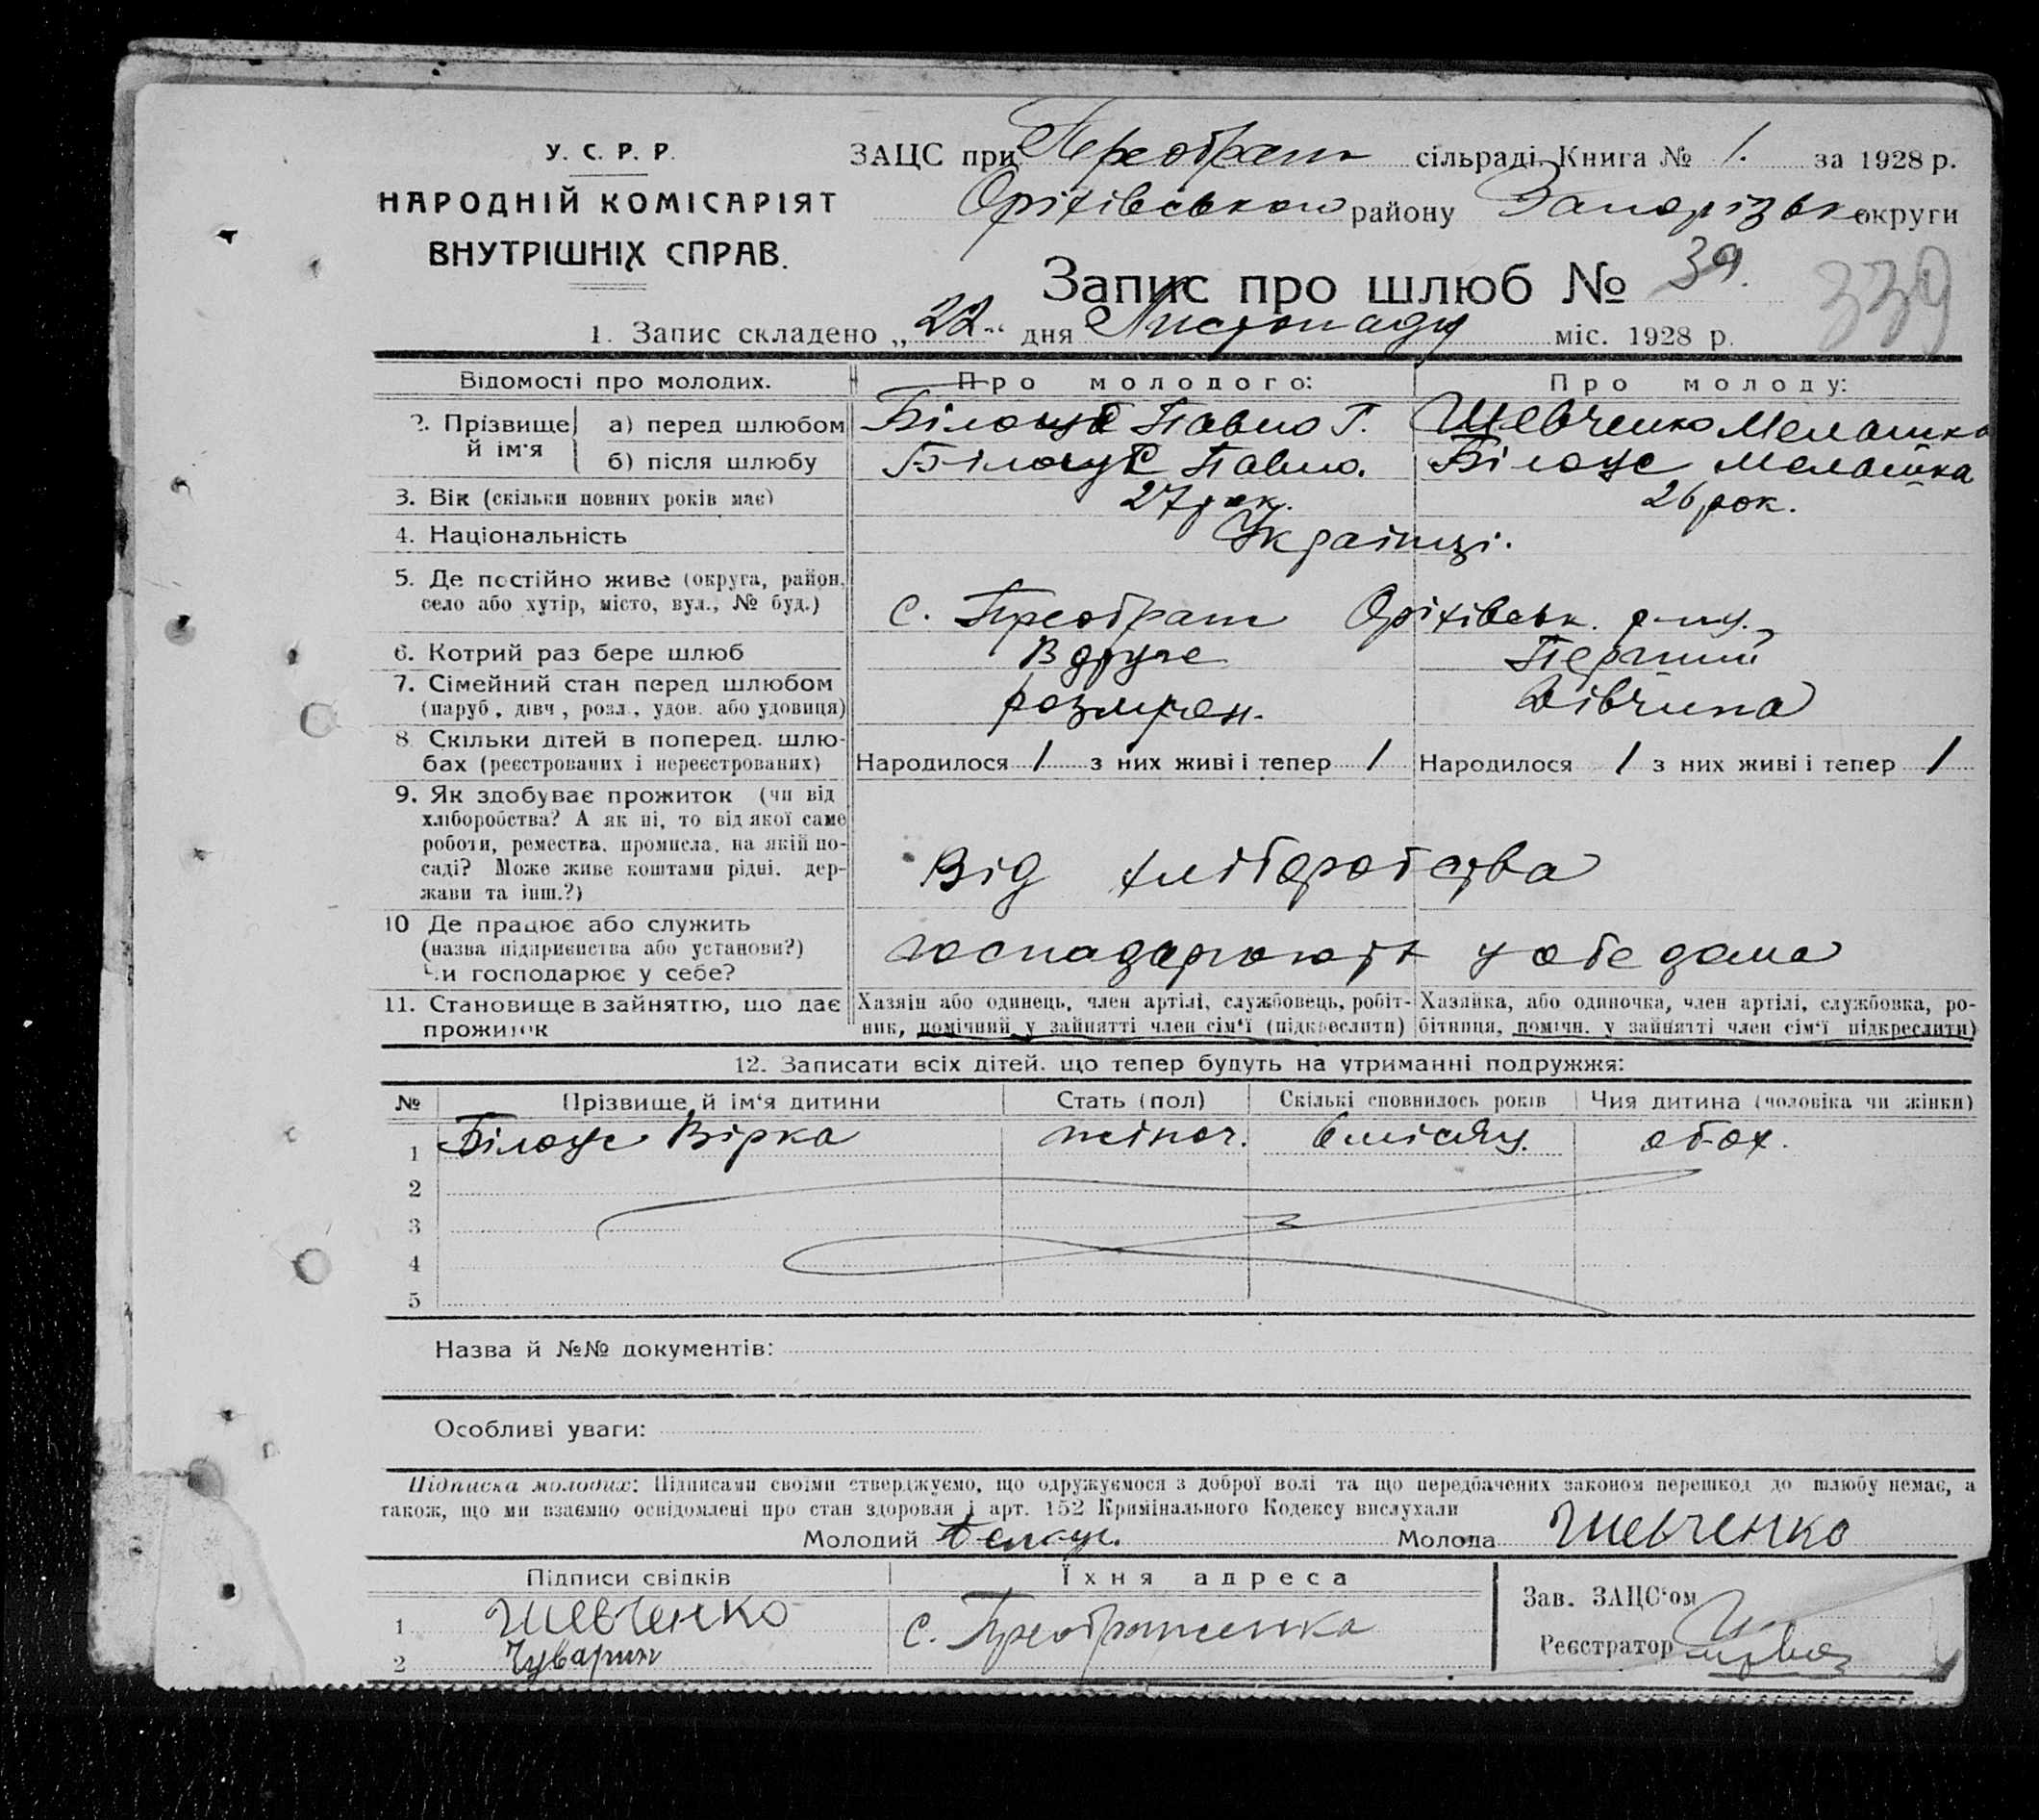 У. С. Р. Р.
НАРОДНІЙ КОМІСАРІЯТ
ВНУТРІШНІХ СПРАВ.
ЗАЦС при Преображ сільраді. Книга № 1. за 1928 р.
Оріхівського району Запорізьк округи
Запис про шлюб № 39.
339
1. Запис складено „22“ дня Листопаду міс. 1928 р.
Відомості про молодих. Про молодого: Про молоду:
2. Прізвище й ім'я а) перед шлюбом Білоус Павло Г. Шевченко Мелашка
б) після шлюбу Білоус Павло. Білоус Мелашка
3. Вік (скільки повних років має) 27 рок. 26 рок.
4. Національність Українці.
5. Де постійно живе (округа, район,
село або хутір, місто, вул., № буд.) С. Преображ Оріхівськ. р-ну.
6. Котрий раз бере шлюб Вдруге Перший
7. Сімейний стан перед шлюбом
(паруб, дівч, розл., удов. або удовиця) Дівчина
8 Скільки дітей в поперед. шлю-
бах (реєстрованих і нереєстрованих) Народилося 1 з них живі і тепер 1 Народилося 1 з них живі і тепер 1
9. Як здобуває прожиток (чи від
хліборобства? А як ні, то від якої саме
роботи, ремества, промисла, на якій по-
саді? Може живе коштами рідні, дер-
жави та інш.?)
Від хліборобства
10 Де працює або служить
(назва підприємства або установи?)
Чи господарює у себе?
господарюють у себе дома
11. Становище в зайняттю, що дає
прожиток
Хазяїн або одинець, член артілі, службовець, робіт-
ник, помічний у зайнятті член сім'ї (підкреслити)
Хазяйка, або одиночка, член артілі, службовка, ро-
бітниця, помічн. у зайнятті член сім'ї підкреслити)
12. Записати всіх дітей. що тепер будуть на утриманні подружжя:
№ Прізвище й ім'я дитини Стать (пол) Скількі сповнилось років Чия дитина (чоловіка чи жінки)
1 Білоус Вірка жіноч. 6 місяц. обох.
2
3
4
5
Назва й №№ документів:
Особливі уваги:
Підписка молодих: Підписами своїми стверджуємо, що одружуємося з доброї волі та що передбачених законом перешкод до шлюбу немає, а
також, що ми взаємно освідомлені про стан здоровля і арт. 152 Кримінального Кодексу вислухали
Молодий Молода Шевченко
Підписи свідків Їхня адреса
1 Шевченко С. Преображенка
2
Зав. ЗАЦС'ом
Реєстратор